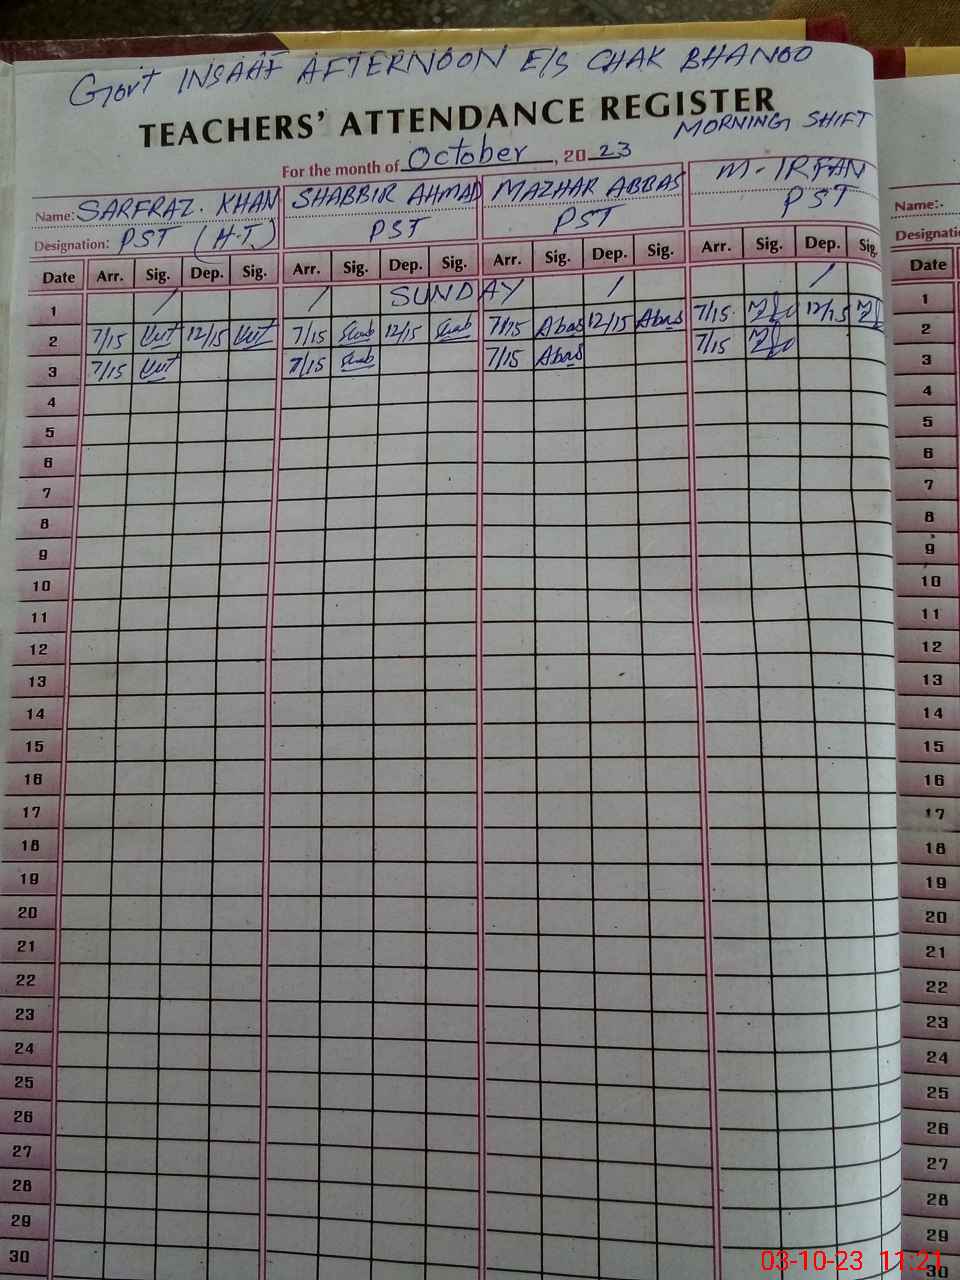 Govt INSAAF AFTERNOON E/S CHAK BHANOO
TEACHERS' ATTENDANCE REGISTER
MORNING SHIFT
For the month of October, 2023
Name: SARFRAZ. KHAN SHABBIR AHMAD MAZHAR ABBAS M. IRFAN Name:
Designation: PST (H.T.) PST PST PST Designati
Date Arr. Sig. Dep. Sig. Arr. Sig. Dep. Sig. Arr. Sig. Dep. Sig. Arr. Sig. Dep. Sig. Date
1 / / SUNDAY / / 1
2 7/15 12/15 7/15 12/15 7/15 Abas 12/15 Abas 7/15 12/15 2
3 7/15 7/15 7/15 Abas 7/15 3
4 4
5 5
6 6
7 7
8 8
9 9
10 10
11 11
12 12
13 13
14 14
15 15
16 16
17 17
18 18
19 19
20 20
21 21
22 22
23 23
24 24
25 25
26 26
27 27
28 28
29 29
30 30
03-10-23 11:21